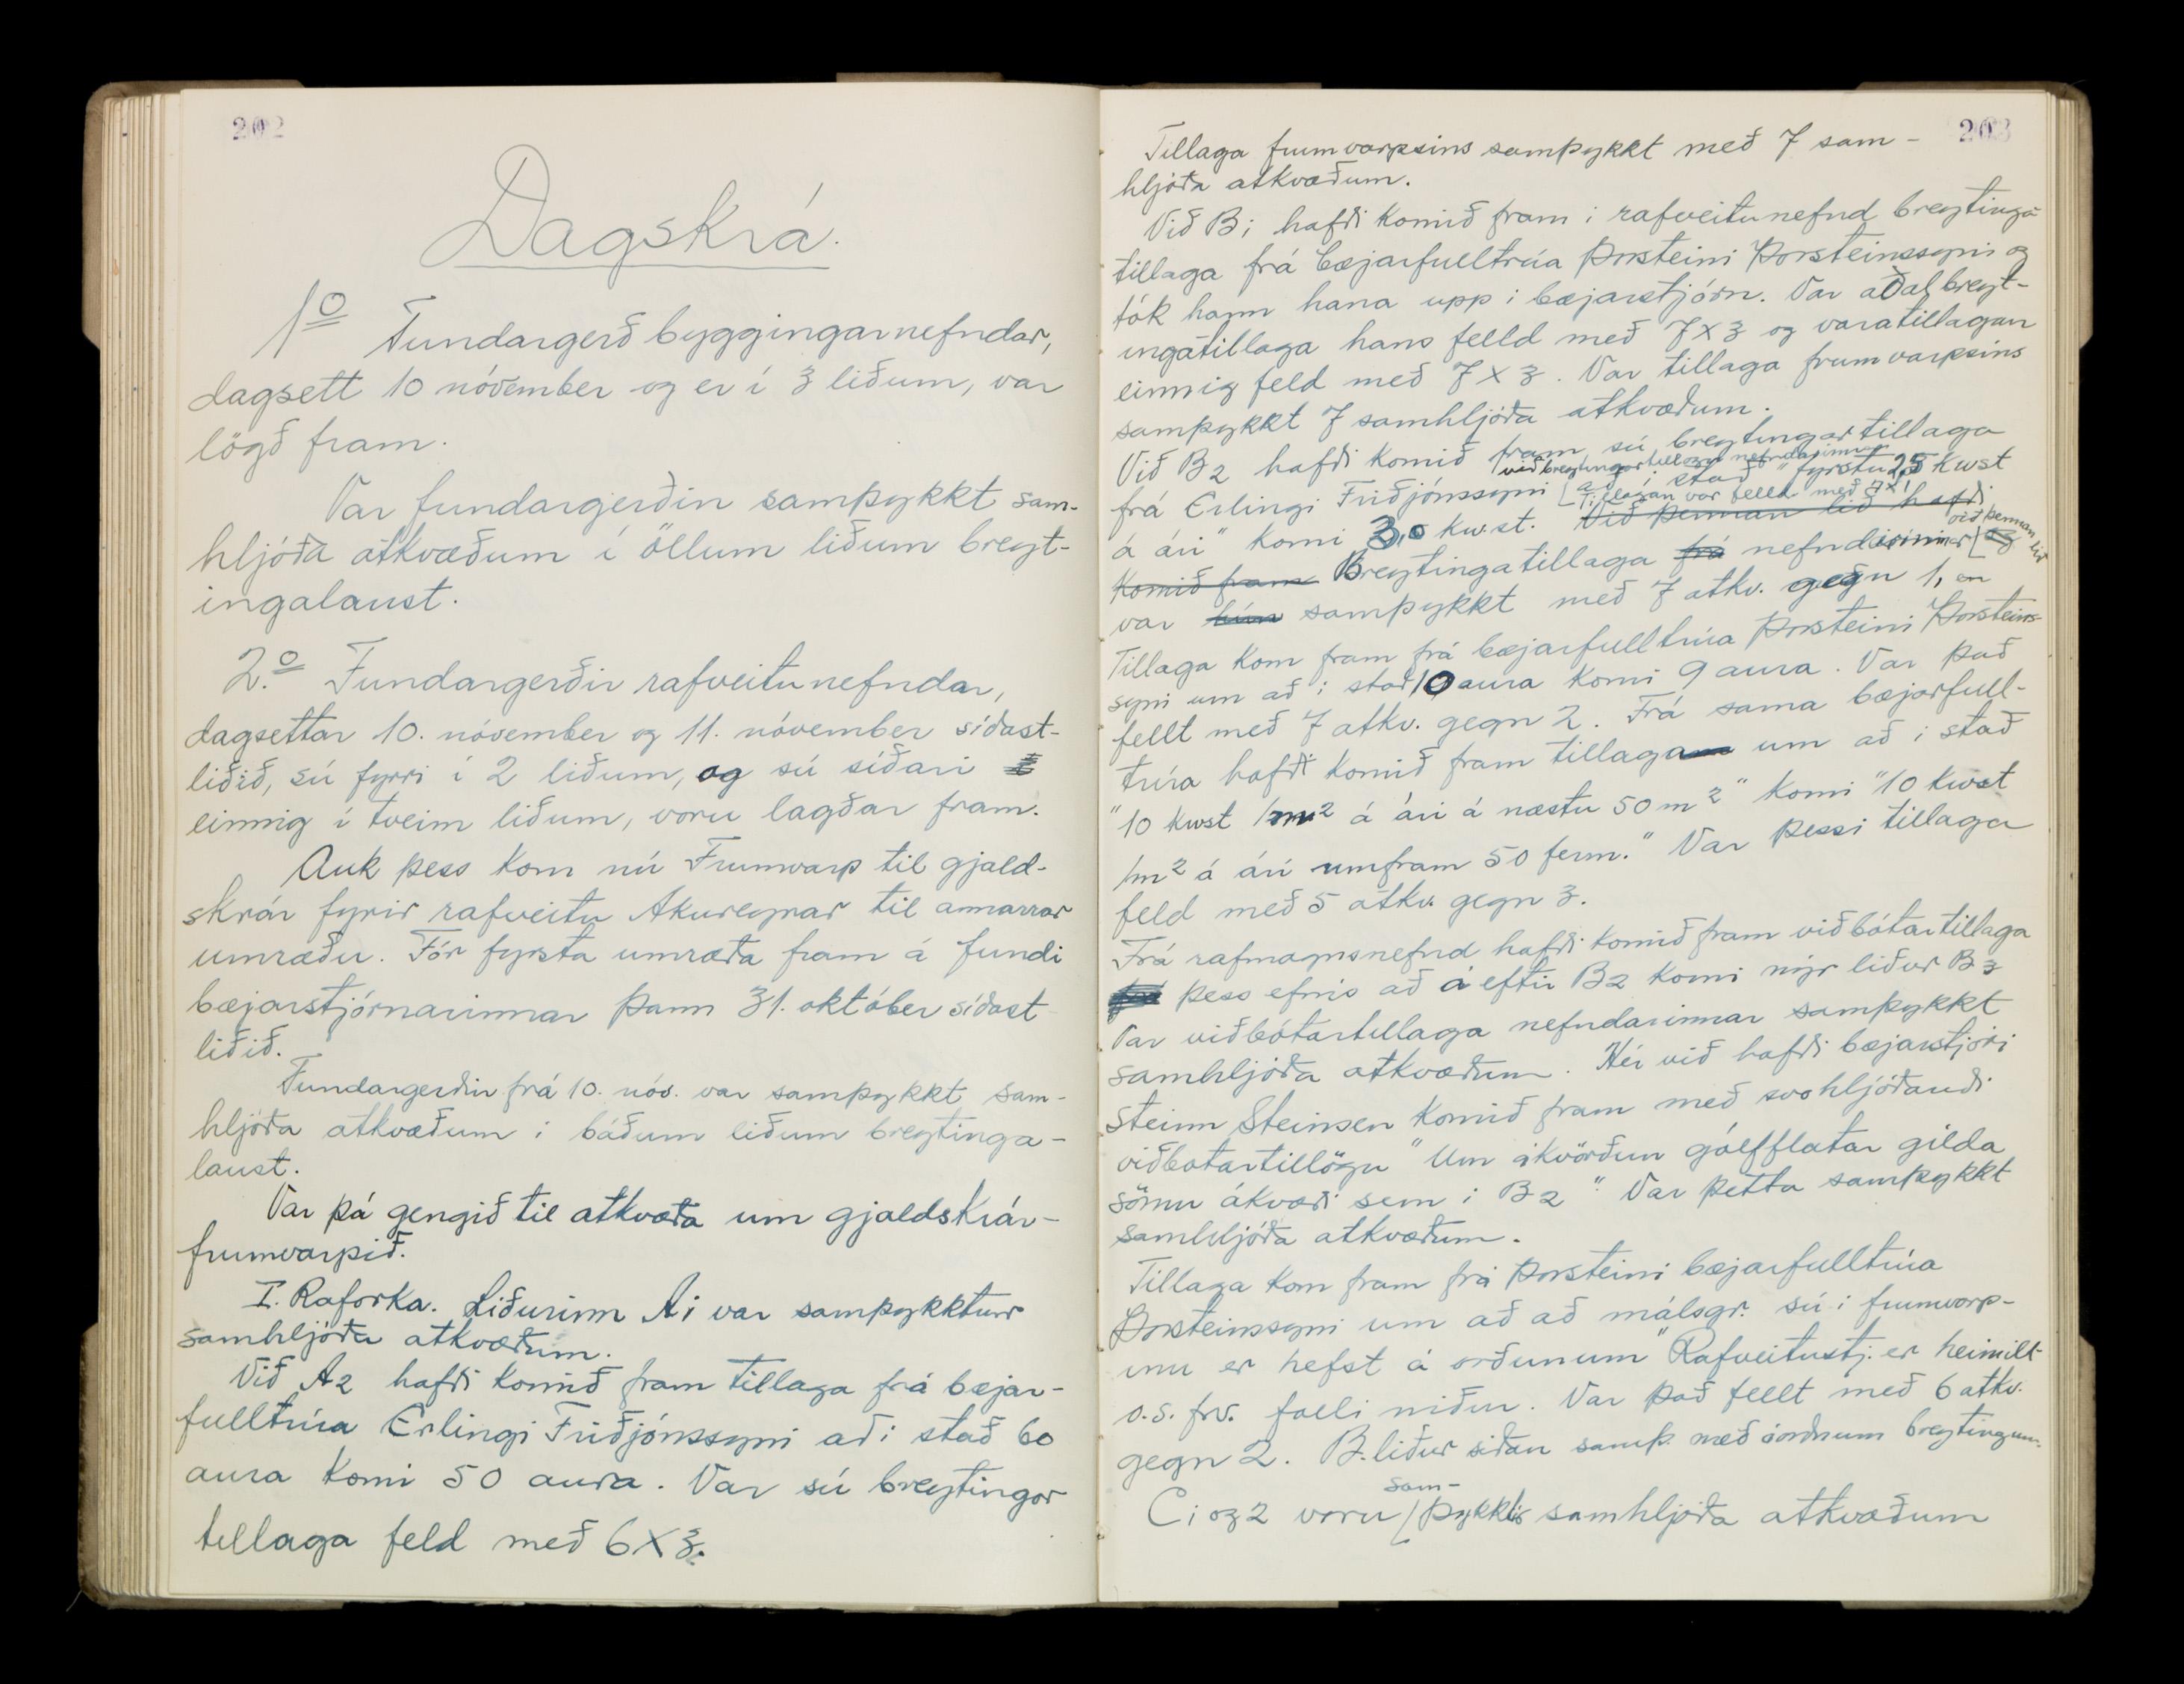 202
Dagskrá.
1º Fundargerð byggingarnefndar,
dagsett 10 nóvember og er í 3 liðum, var
lögð fram.
Var fundargerðin samþykkt sam-
hljóða atkvæðum í öllum liðum breyt-
ingalaust.
2.º Fundargerðir rafveitunefndar,
dagsettar 10. nóvember og 11. nóvember síðast-
liðið, sú fyrri í 2 liðum, og sú síðari
einnig í tveim liðum, voru lagðar fram.
Auk þess kom nú Frumvarp til gjald-
skrár fyrir rafveitu Akureyrar til annarrar
umræðu. Fór fyrsta umræða fram á fundi
bæjarstjórnarinnar þann 31. október síðast
liðið.
Fundargerðin frá 10. nóv. var samþykkt sam-
hljóða atkvæðum i báðum liðum breytinga-
laust.
Var þá gengið til atkvæða um gjaldskrár-
frumvarpið.
I. Raforka. Liðurinn A1 var samþykktur
samhljóða atkvæðum.
Við A2 hafði komið fram tillaga frá bæjar-
fulltrúa Erlingi Friðjónssyni að i stað 60
aura komi 50 aura. Var sú breytingar
tillaga feld með 6x3.
203
Tillaga frumvarpsins samþykkt með 7 sam-
hljóða atkvæðum.
Við B1 hafði komið fram i rafveitunefnd breytinga
tillaga frá bæjarfulltrúa Þorsteini Þorsteinssyni og
tók hann hana upp i bæjarstjórn. Var aðalbreyt-
ingatillaga hans felld með 7x3 og varatillagan
einnig feld með 7x3. Var tillaga frumvarpsins
samþykkt 7 samhljóða atkvæðum.
Við B2 hafði komið fram sú breytingartillaga
við breytingartillögu nefndarinnar
frá Erlingi Friðjónssyni að i stað "fyrstu 2,5 Kwst
Tillagan var felld með 7x1
á ári" komi 3,0 kw.st. Við þennan lið hafði
við þennan lið
komið fram Breytingatillaga frá nefndarinnar
var hún samþykkt með 7 atkv. gegn 1, en
Tillaga kom fram frá bæjarfulltrúa Þorsteini Þorsteins-
syni um að i stað 10 aura komi 9 aura. Var það
fellt með 7 atkv. gegn 2. Frá sama bæjarfull-
trúa hafði komið fram tillaga um að i stað
"10 kwst /m² á ári á næstu 50 m²" komi "10 kwst
/m² á ári umfram 50 ferm." Var þessi tillaga
feld með 5 atkv. gegn 3.
Frá rafmagnsnefnd hafði komið fram viðbótartillaga
þess efnis að á eftir B2 komi nýr liður B3
Var viðbótartillaga nefndarinnar samþykkt
samhljóða atkvæðum. Hér við hafði bæjarstjóri
Steinn Steinsen komið fram með svohljóðandi
viðbotartillögu "Um ákvörðun gólfflatar gilda
sömu ákvæði sem i B2". Var þetta samþykkt
samhljóða atkvæðum.
Tillaga kom fram frá Þorsteini bæjarfulltrúa
Þorsteinssyni um að að málsgr. sú i frumvarp-
inu er hefst á orðunum "Rafveitustj. er heimilt
o.s. frv. falli niður. Var það fellt með 6 atkv.
gegn 2. B. liður siðan samþ. með áorðnum breytingum.
sam-
C1 og 2 voru þykktir samhljóða atkvæðum